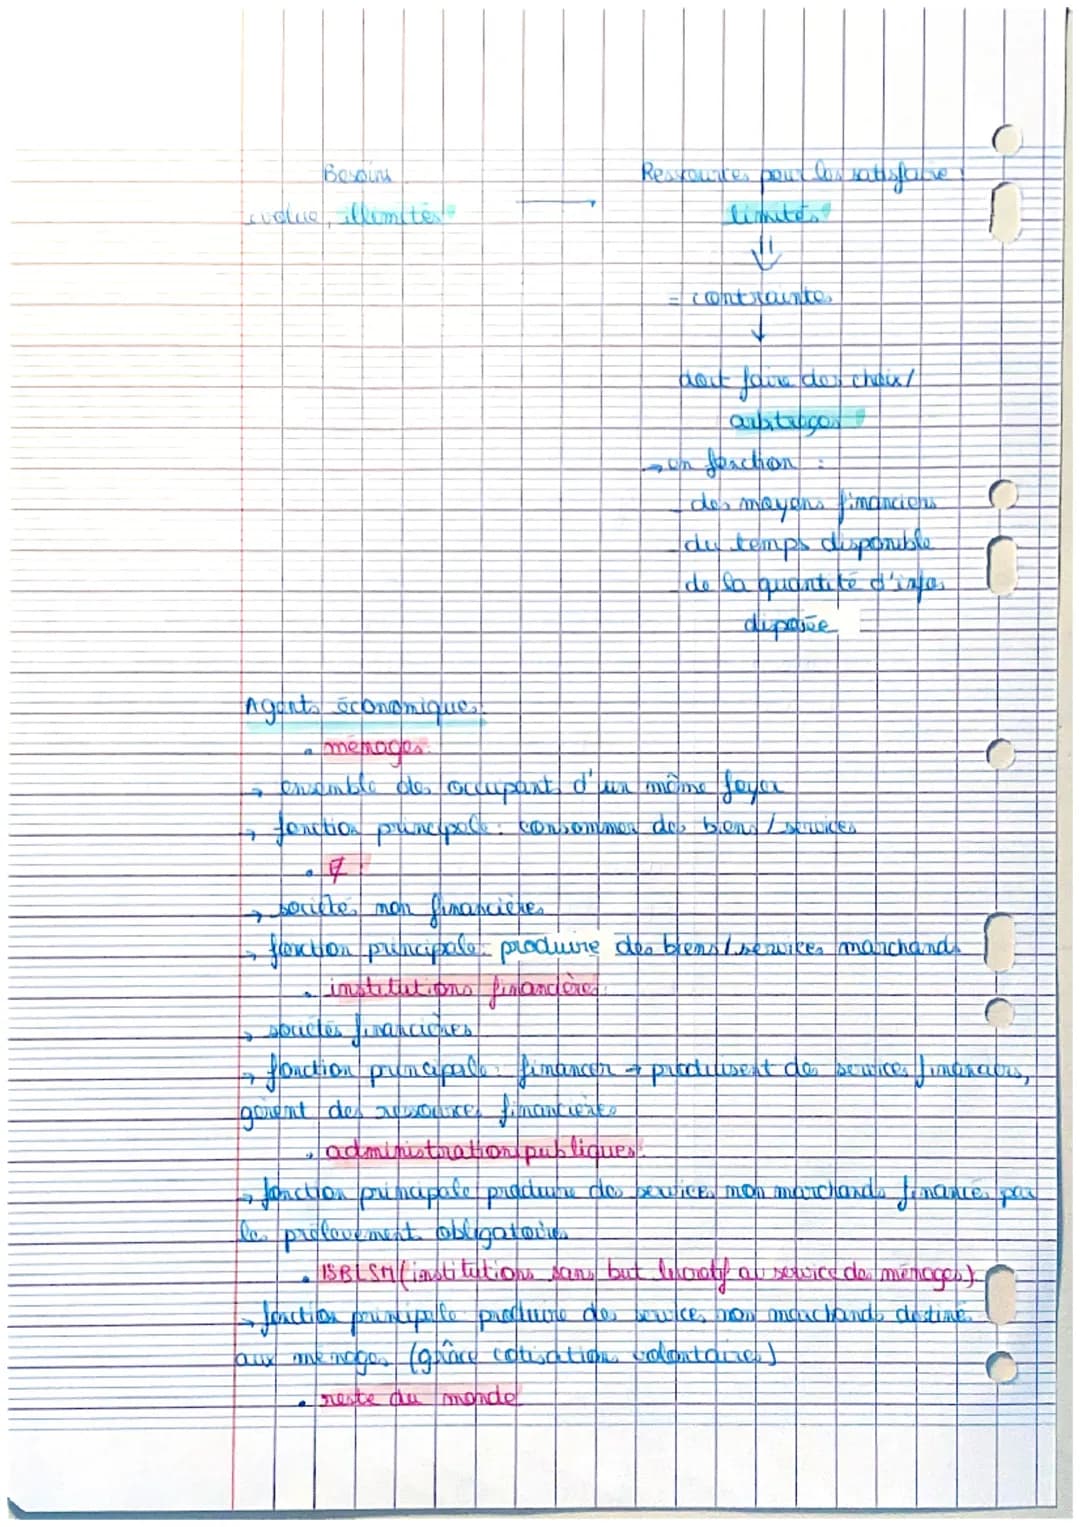 Besoins
évolue, illimités
Ressources pour les satisfaire
limités
= contraintes
doit faire des choix/
arbitrages
→ en fonction :
- des moyens financiers
- du temps disponible
- de la quantité d'infos
disposée
Agents économiques:
• ménages:
→ ensemble des occupants d'un même foyer
→ fonction principale: consommer des biens/services
→ sociétés non financières
→ fonction principale: produire des biens/services marchands
• institutions financières:
→ sociétés financières
→ fonction principale: financer → produisent des services financiers,
gèrent des ressources financières
• administrations publiques:
→ fonction principale produire des services non marchands financés par
les prélèvement obligatoires
• ISBLSM (institutions sans but lucratif au service des ménages)
→ fonction principale produire des services non marchands destiné
aux ménages (grâce cotisations volontaires)
• reste du monde